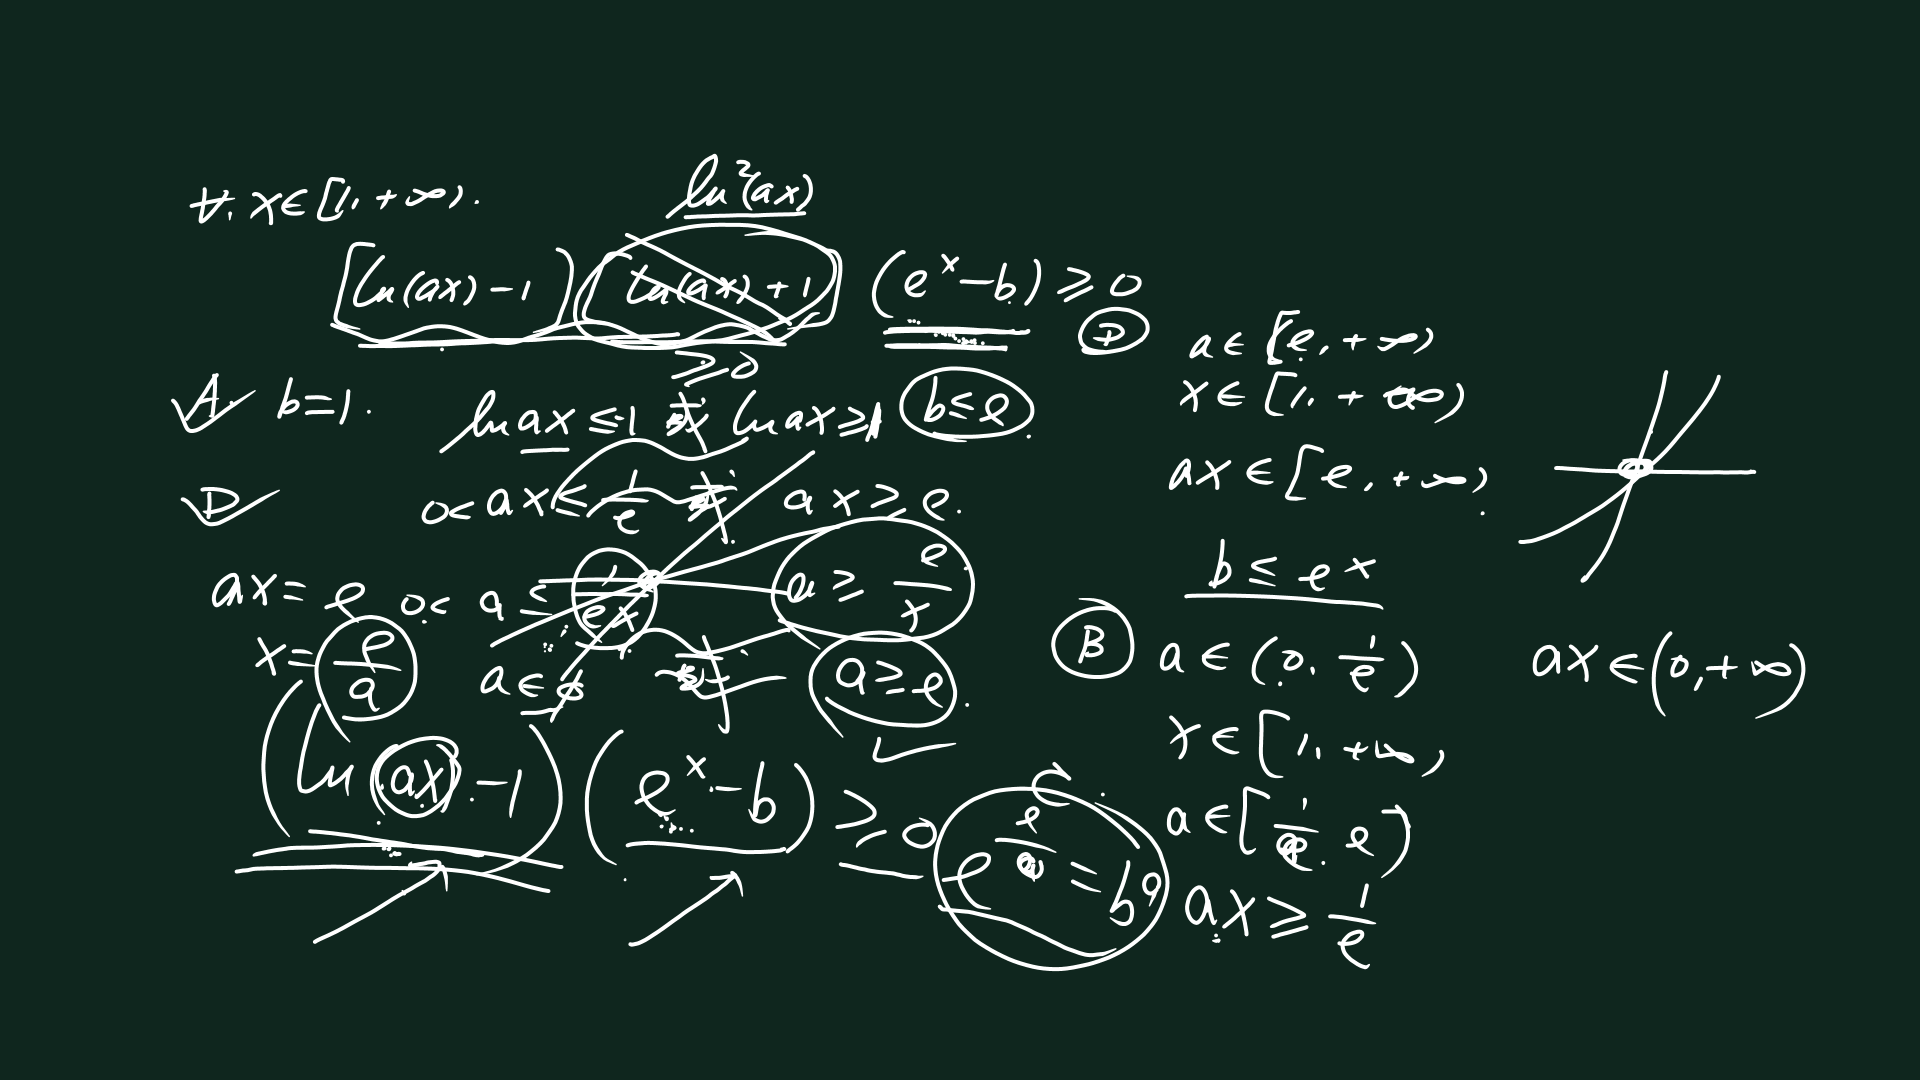 ∀. x∈[1, +∞).
ln²(ax)
[ln(ax)-1] [ln(ax)+1] (eˣ-b) ≥ 0
≥0
Ⓓ
A. b=1.
ln ax ≤ -1 ln ax ≥ 1
b ≤ e
D
0< ax ≤ 1/e ax ≥ e.
ax = e
0< a ≤ 1/ex a ≥ e/x
x = e/a
a ∈ ∅ a ≥ e
(ln(ax)-1) (eˣ-b) ≥ 0
C e^(e/a) = b
a ∈ [e, +∞)
x ∈ [1, +∞)
ax ∈ [e, +∞)
b ≤ eˣ
Ⓑ a ∈ (0, 1/e)
ax ∈ (0, +∞)
x ∈ [1, +∞)
a ∈ [1/e, e)
ax ≥ 1/e